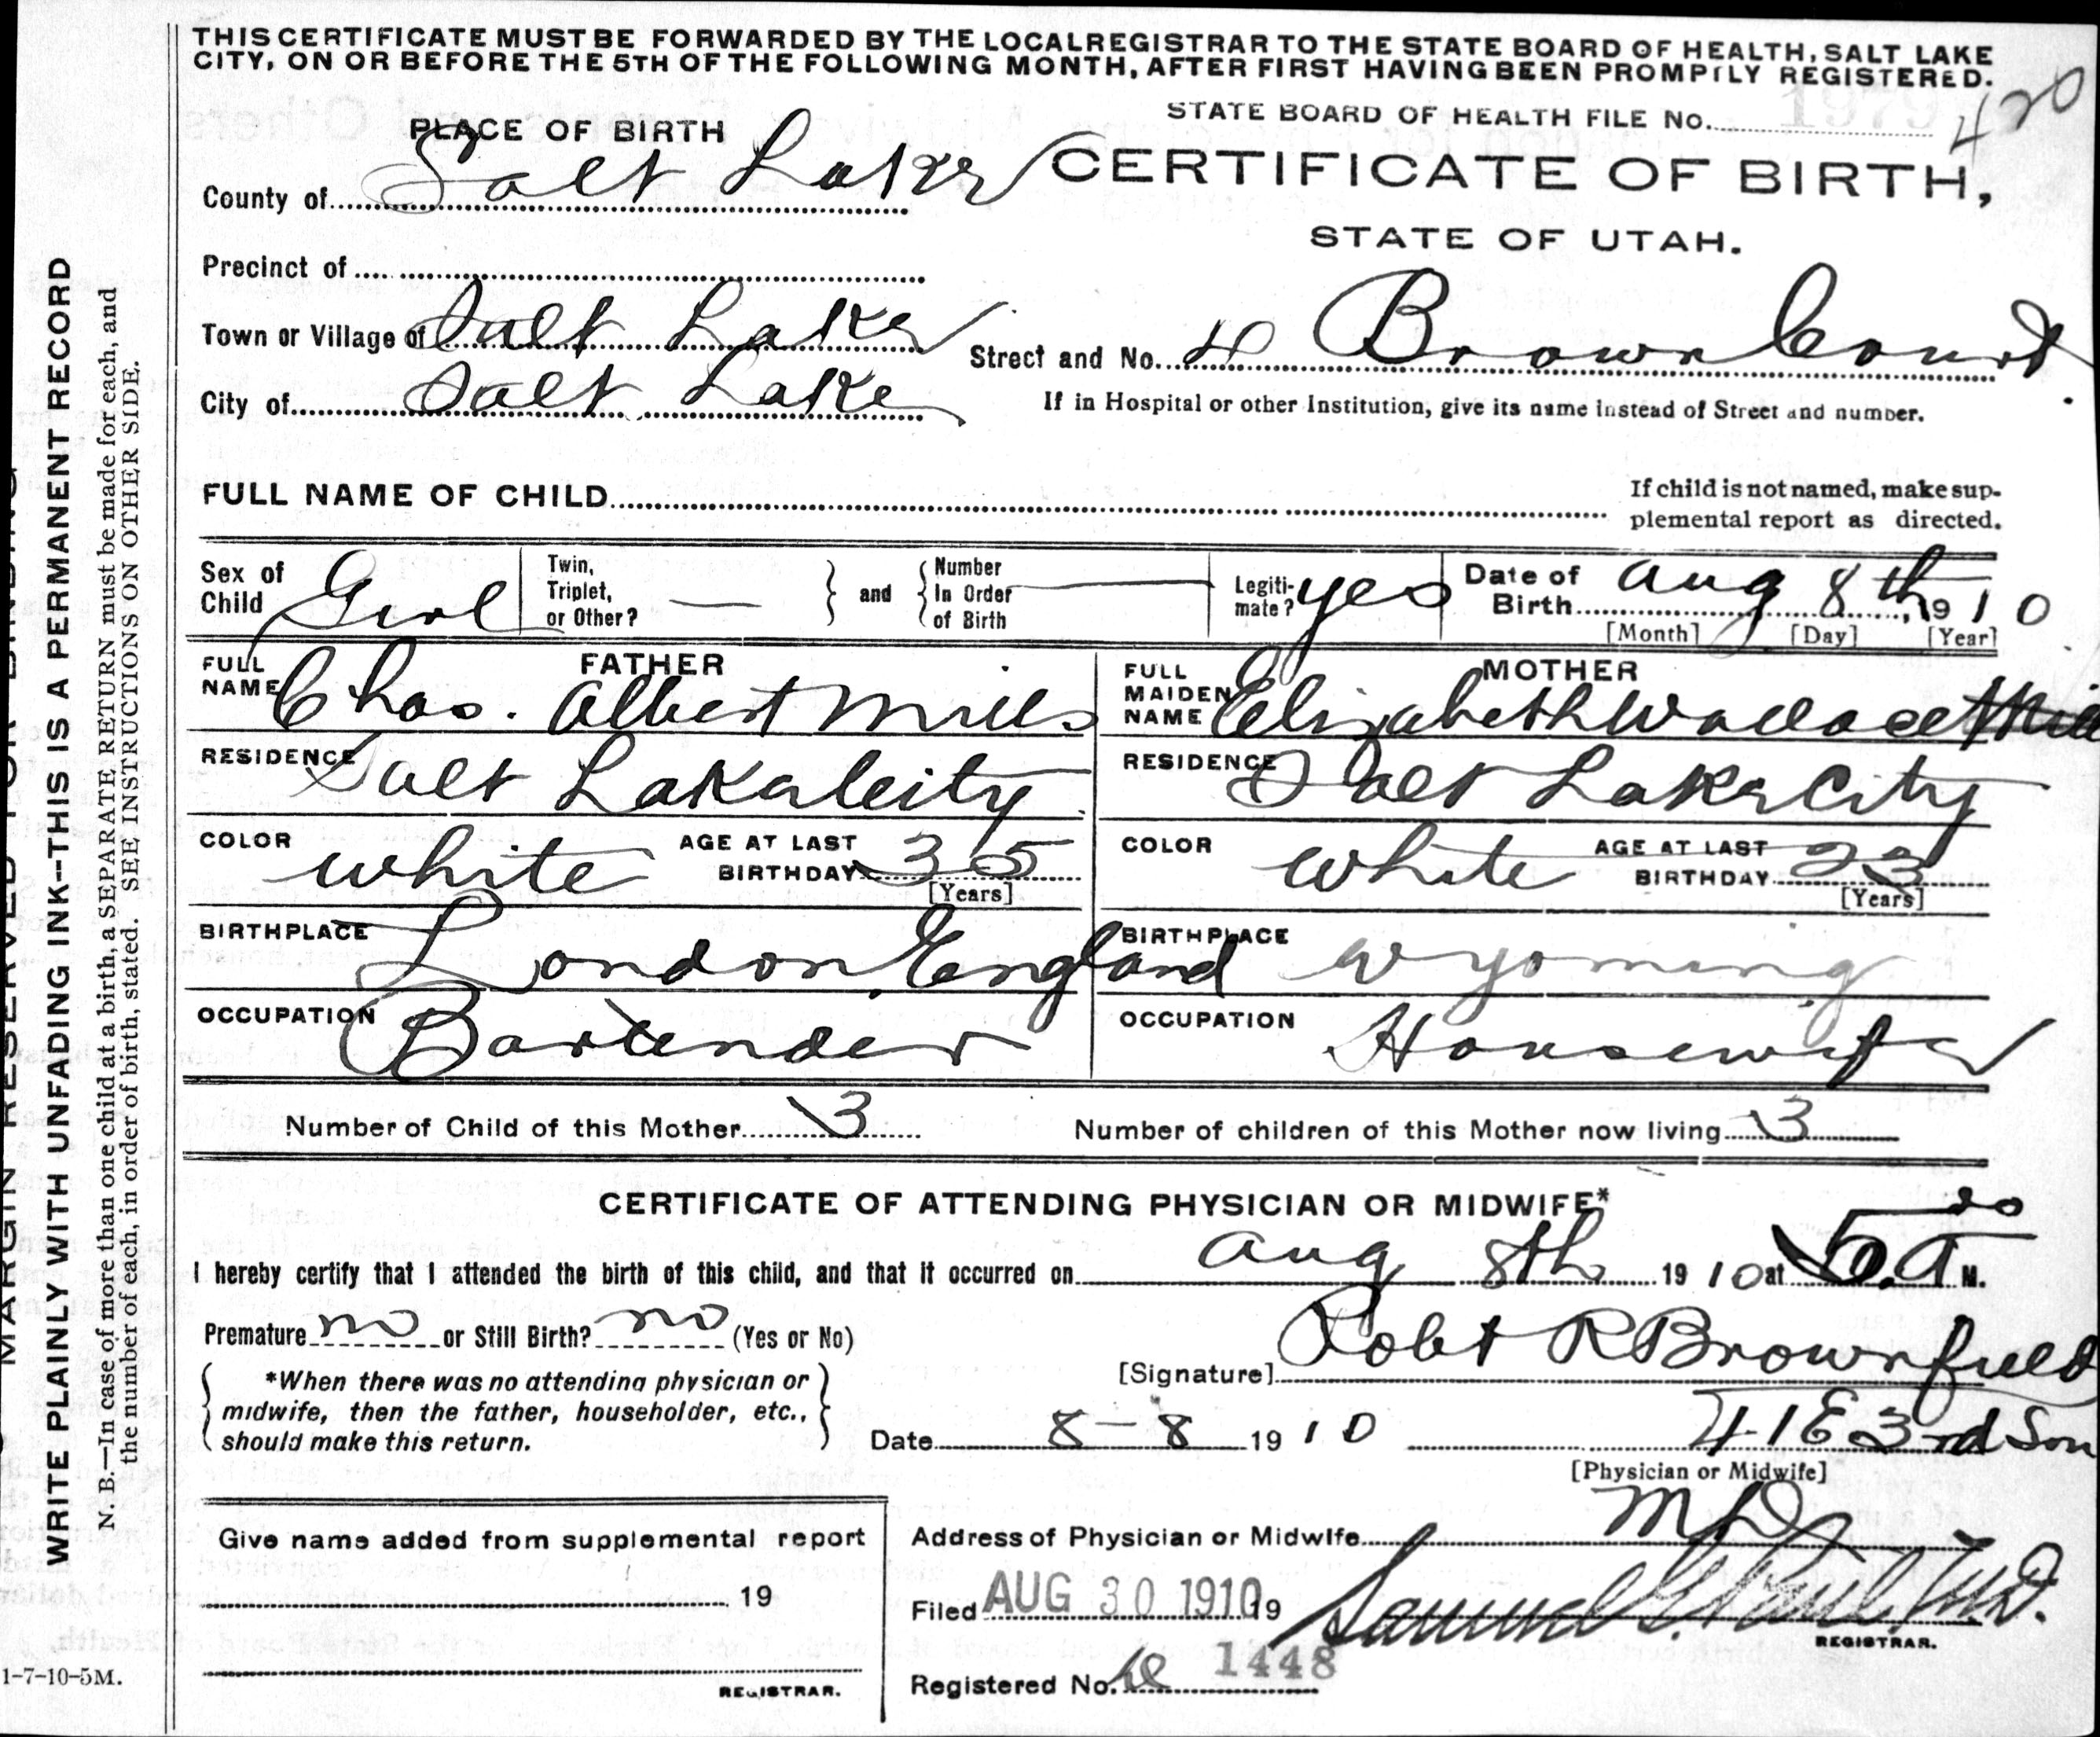 THIS CERTIFICATE MUST BE FORWARDED BY THE LOCAL REGISTRAR TO THE STATE BOARD OF HEALTH, SALT LAKE
CITY, ON OR BEFORE THE 5TH OF THE FOLLOWING MONTH, AFTER FIRST HAVING BEEN PROMPTLY REGISTERED.
STATE BOARD OF HEALTH FILE No. 420
PLACE OF BIRTH
CERTIFICATE OF BIRTH,
County of Salt Lake
STATE OF UTAH.
Precinct of
Town or Village of Salt Lake
Street and No. 4 Brown Court.
City of Salt Lake
If in Hospital or other Institution, give its name instead of Street and number.
FULL NAME OF CHILD
If child is not named, make sup-
plemental report as directed.
Sex of Child Girl
Twin, Triplet, or Other? —
and
Number In Order of Birth
Legiti-mate? yes
Date of Birth Aug 8th, 1910
[Month] [Day] [Year]
FATHER
FULL NAME Chas. Albert Mills
RESIDENCE Salt Lake City
COLOR white
AGE AT LAST BIRTHDAY 35
[Years]
BIRTHPLACE London, England
OCCUPATION Bartender
MOTHER
FULL MAIDEN NAME Elizabeth Wallace
RESIDENCE Salt Lake City
COLOR White
AGE AT LAST BIRTHDAY 23
[Years]
BIRTHPLACE Wyoming
OCCUPATION Housewife
Number of Child of this Mother 3
Number of children of this Mother now living 3
CERTIFICATE OF ATTENDING PHYSICIAN OR MIDWIFE*
I hereby certify that I attended the birth of this child, and that it occurred on Aug 8th 1910 at 5 A M.
Premature no or Still Birth? no (Yes or No)
[Signature] Robt R Brownfield
*When there was no attending physician or
midwife, then the father, householder, etc.,
should make this return.
Date 8-8 1910 41 E 3rd Sou
[Physician or Midwife]
Address of Physician or Midwife MD
Give name added from supplemental report
19
REGISTRAR.
Filed AUG 30 1910 19 Samuel G. Paul, M.D.
REGISTRAR.
Registered No. 1448
MARGIN RESERVED FOR BINDING
WRITE PLAINLY WITH UNFADING INK—THIS IS A PERMANENT RECORD
N. B.—In case of more than one child at a birth, a SEPARATE RETURN must be made for each, and
the number of each, in order of birth, stated. SEE INSTRUCTIONS ON OTHER SIDE.
1-7-10-5M.